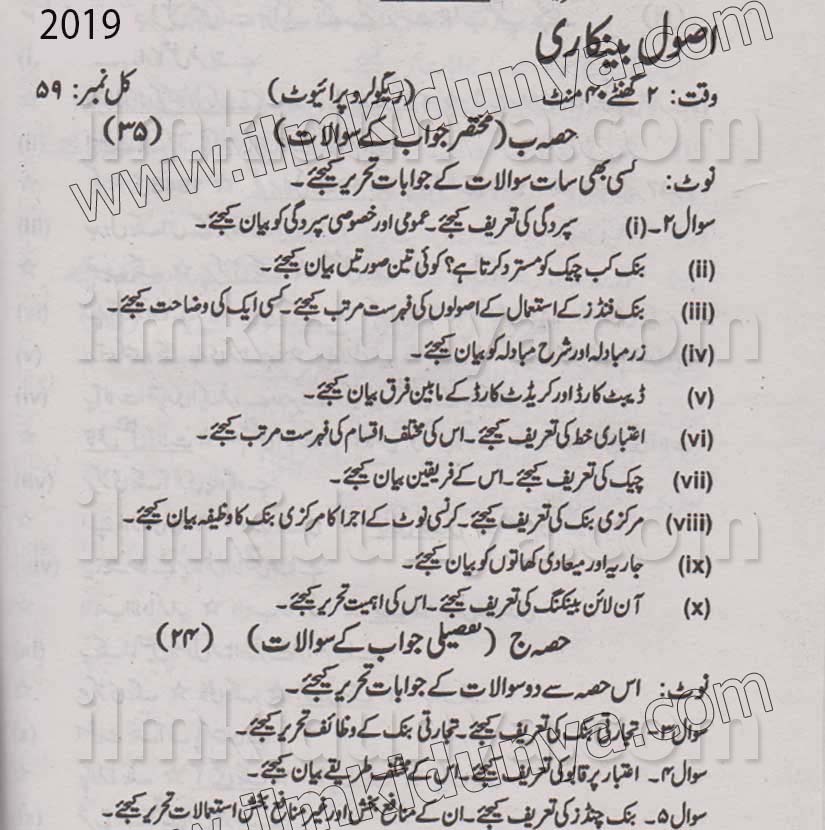 2019
اصول بینکاری
وقت: ۲ گھنٹے ۴۰ منٹ (ریگولر و پرائیوٹ) کل نمبر: ۵۹
حصہ ب (مختصر جواب کے سوالات) (۳۵)
نوٹ: کسی بھی سات سوالات کے جوابات تحریر کیجئے۔
سوال ۲۔(i) سپردگی کی تعریف کیجئے۔ عمومی اور خصوصی سپردگی کو بیان کیجئے۔
(ii) بنک کب چیک کو مسترد کرتا ہے؟ کوئی تین صورتیں بیان کیجئے۔
(iii) بنک فنڈز کے استعمال کے اصولوں کی فہرست مرتب کیجئے۔ کسی ایک کی وضاحت کیجئے۔
(iv) زرمبادلہ اور شرح مبادلہ کو بیان کیجئے۔
(v) ڈیبٹ کارڈ اور کریڈٹ کارڈ کے مابین فرق بیان کیجئے۔
(vi) اعتباری خط کی تعریف کیجئے۔ اس کی مختلف اقسام کی فہرست مرتب کیجئے۔
(vii) چیک کی تعریف کیجئے۔ اس کے فریقین بیان کیجئے۔
(viii) مرکزی بنک کی تعریف کیجئے۔ کرنسی نوٹ کے اجرا کا مرکزی بنک کا وظیفہ بیان کیجئے۔
(ix) جاریہ اور میعادی کھاتوں کو بیان کیجئے۔
(x) آن لائن بینکنگ کی تعریف کیجئے۔ اس کی اہمیت تحریر کیجئے۔
حصہ ج (تفصیلی جواب کے سوالات) (۲۴)
نوٹ: اس حصہ سے دو سوالات کے جوابات تحریر کیجئے۔
سوال ۳۔ تجارتی بنک کی تعریف کیجئے۔ تجارتی بنک کے وظائف تحریر کیجئے۔
سوال ۴۔ اعتبار پر قابو کی تعریف کیجئے۔ اس کے مختلف طریقے بیان کیجئے۔
سوال ۵۔ بنک فنڈز کی تعریف کیجئے۔ ان کے منافع بخش اور غیر منافع بخش استعمالات تحریر کیجئے۔
www.ilmkidunya.com
ilmkidunya.com
ilmkidunya.com
ilmkidunya.com
ilmkidunya.com
www.ilmkidunya.com